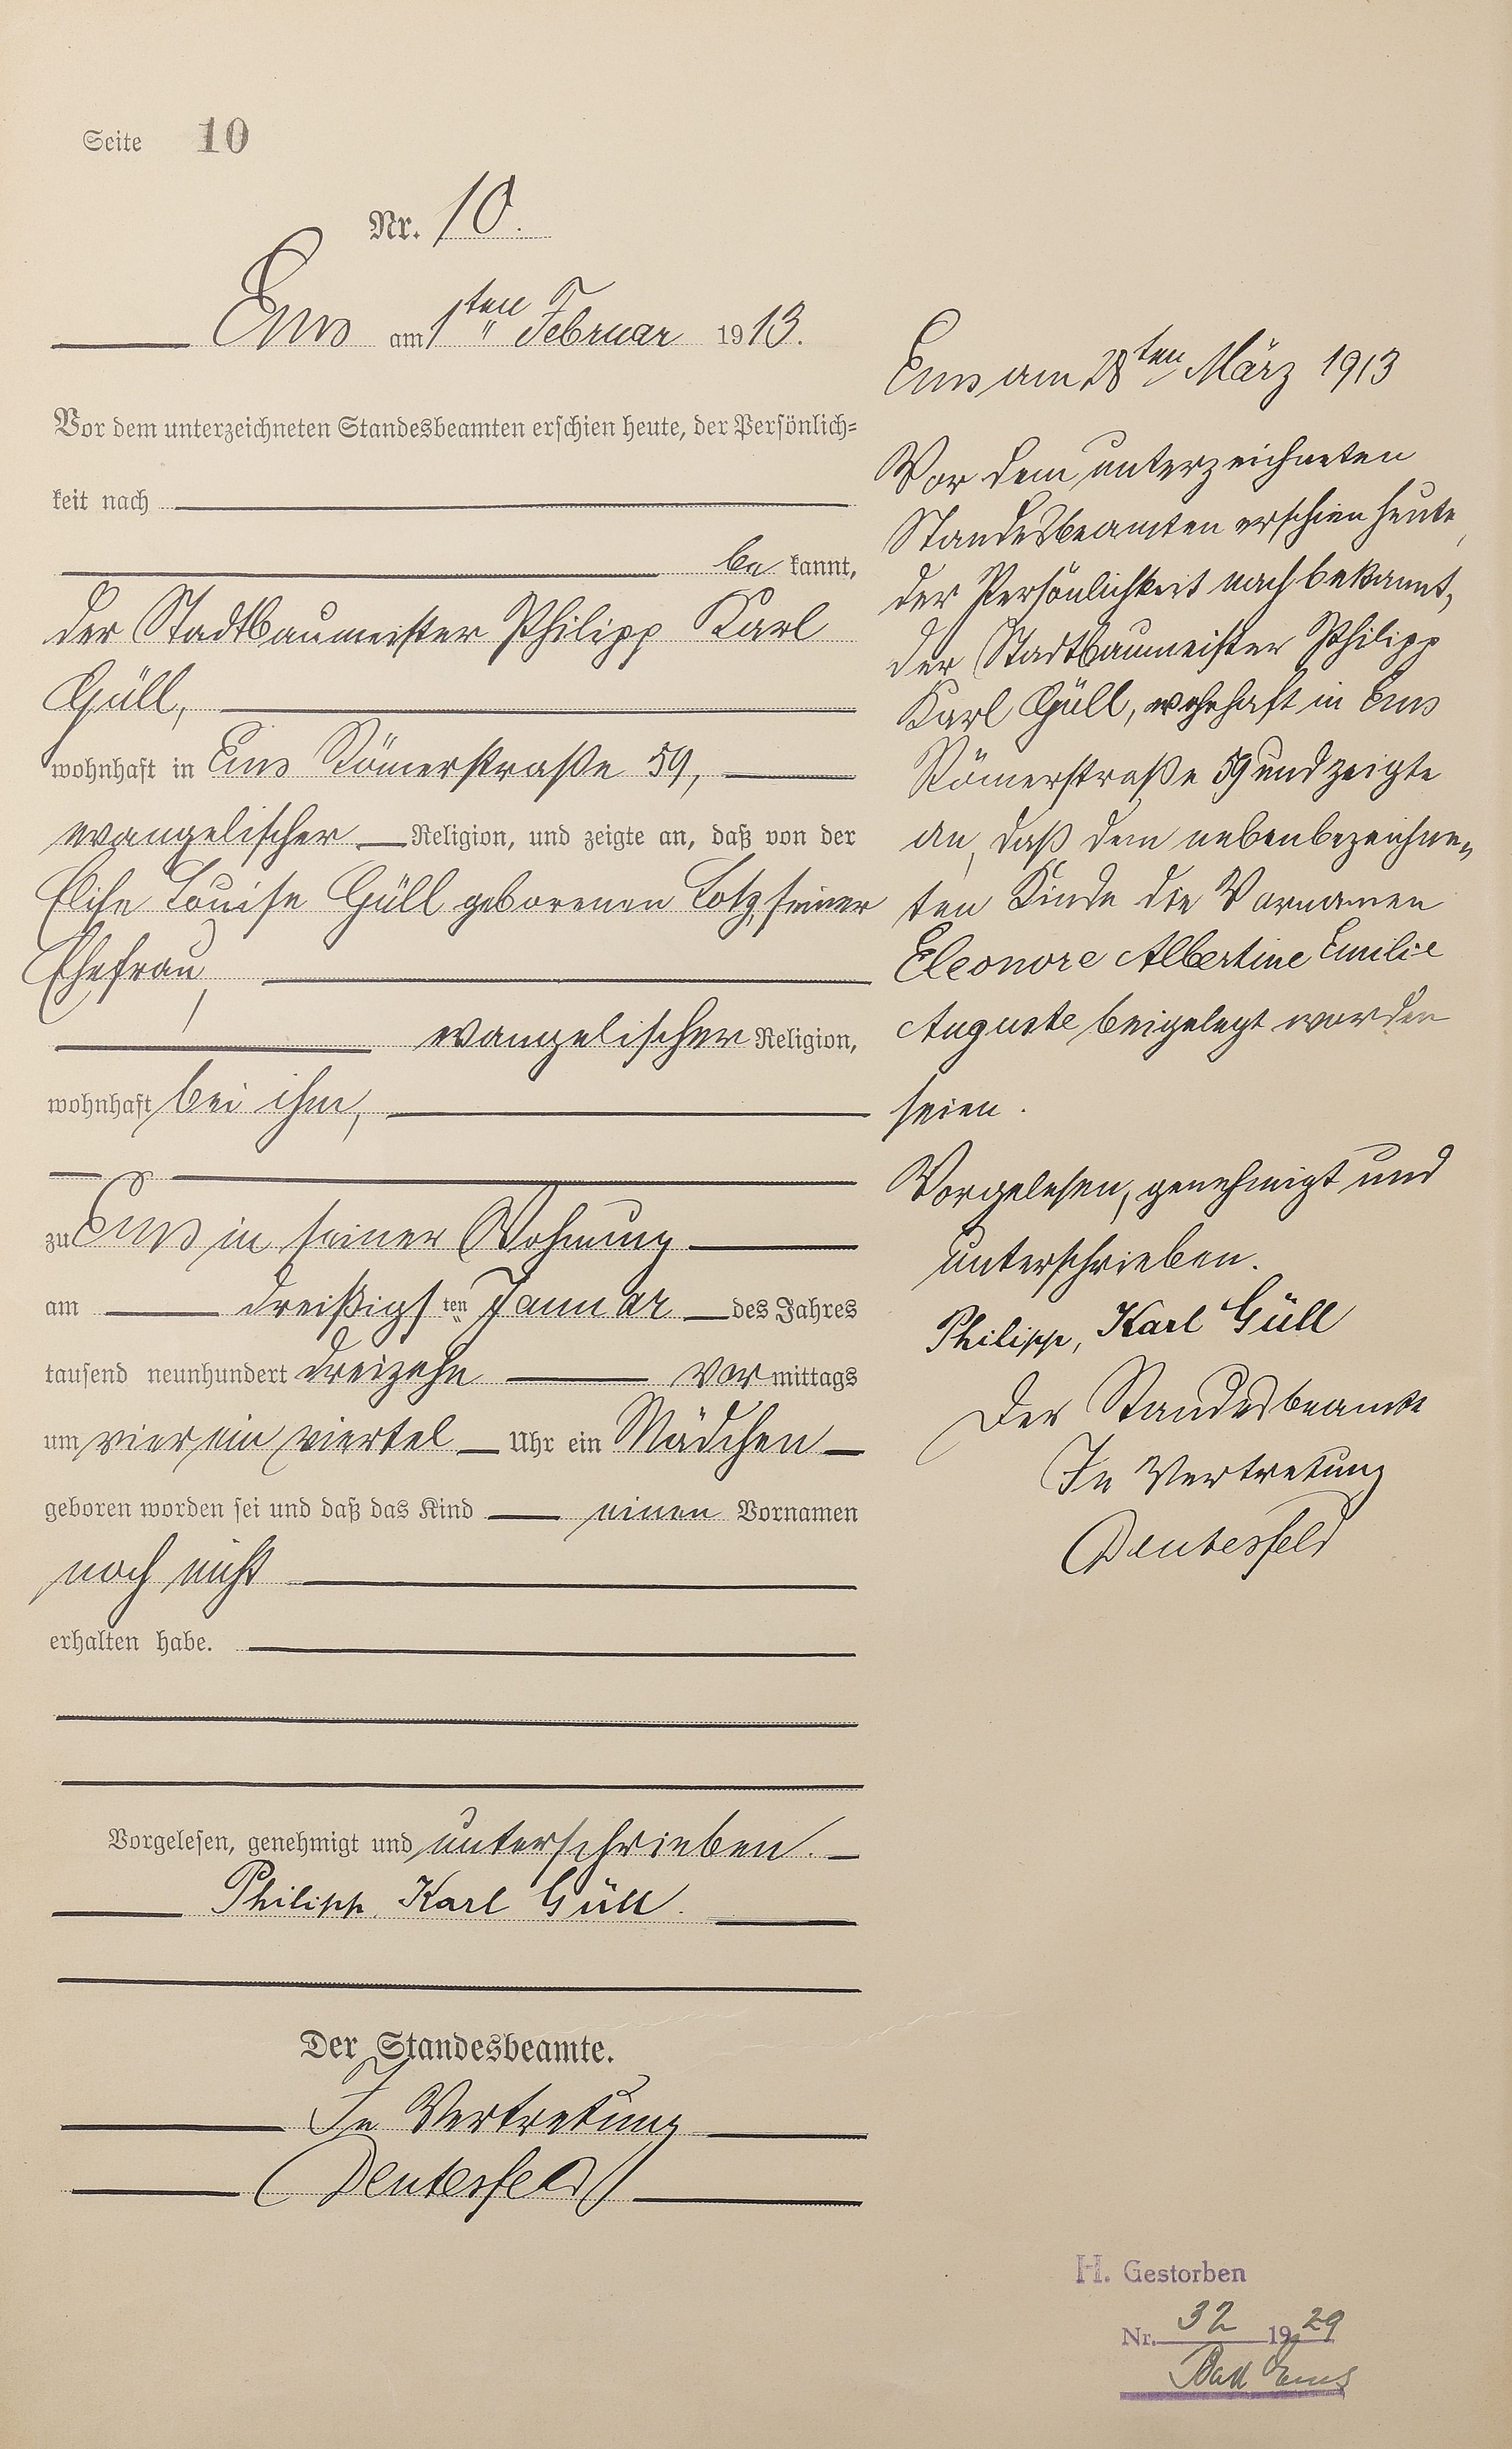 Seite 10
Nr. 10.
Ems am 1ten Februar 1913.
Vor dem unterzeichneten Standesbeamten erschien heute, der Persönlich=
keit nach
be kannt,
der Stadtbaumeister Philipp Karl
Güll,
wohnhaft in Ems Römerstraße 59,
evangelischer Religion, und zeigte an, daß von der
Elise Louise Güll geborenen Lotz, seiner
Ehefrau,
evangelischer Religion,
wohnhaft bei ihm,
zu Ems in seiner Wohnung
am dreißigsten Januar des Jahres
tausend neunhundert dreizehn vor mittags
um vier ein viertel Uhr ein Mädchen
geboren worden sei und daß das Kind einen Vornamen
noch nicht
erhalten habe.
Vorgelesen, genehmigt und unterschrieben.
Philipp, Karl Güll.
Der Standesbeamte.
In Vertretung
Deutesfeld
Ems am 28ten März 1913
Vor dem unterzeichneten
Standesbeamten erschien heute,
der Persönlichkeit nach bekannt,
der Stadtbaumeister Philipp
Karl Güll, wohnhaft in Ems
Römerstraße 59 und zeigte
an, daß dem nebenbezeichne=
ten Kinde die Vornamen
Eleonore Albertine Emilie
Auguste beigelegt worden
seien.
Vorgelesen, genehmigt und
unterschrieben.
Philipp, Karl Güll
Der Standesbeamte
In Vertretung
Deutesfeld
H. Gestorben
Nr. 32 1929
Bad Ems